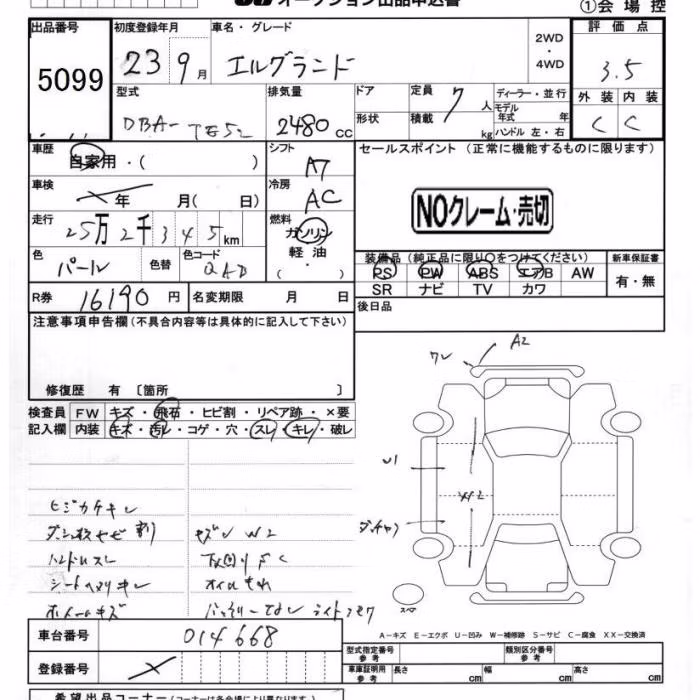 オークション出品申込書
①会 場 控
出品番号 初度登録年月 車名・グレード 2WD・4WD 評 価 点
5099 23 9月 エルグランド 3.5
型式 排気量 ドア 定員 7人 ディーラー・並行 外 装 内 装
DBA-TE52 2480 CC 形状 積載 kg モデル年式 年 ハンドル 左・右 C C
車歴 自家用・( ) シフト A7 セールスポイント (正常に機能するものに限ります)
車検 年 月( 日) 冷房 AC NOクレーム・売切
走行 25万2千345km 燃料 ガソリン・軽 油・( )
色 パール 色替 色コード QAB
装備品(純正品に限り○をつけてください) 新車保証書
PS PW ABS エアB AW 有・無
SR ナビ TV カワ
R券 16190円 名変期限 月 日 後日品
注意事項申告欄(不具合内容等は具体的に記入して下さい)
修復歴 有 〔箇所 〕
ワレ A2
検査員 FW キズ・飛石・ヒビ割・リペア跡・×要
記入欄 内装 キズ・汚レ・コゲ・穴・スレ・キレ・破レ
U1
W2
ヒジカケキレ
キズ W2
ハンドルスレ 下回りサC
シートヘタリキレ オイルもれ
ホイールキズ
スペア
A-キズ E-エクボ U-凹み W-補修跡 S-サビ C-腐食 XX-交換済
車台番号 014668
型式指定番号 参考 類別区分番号 参考
登録番号
車庫証明用 参考 長さ cm 幅 cm 高さ cm
希望出品コーナー(コーナーは各会場により異なります)